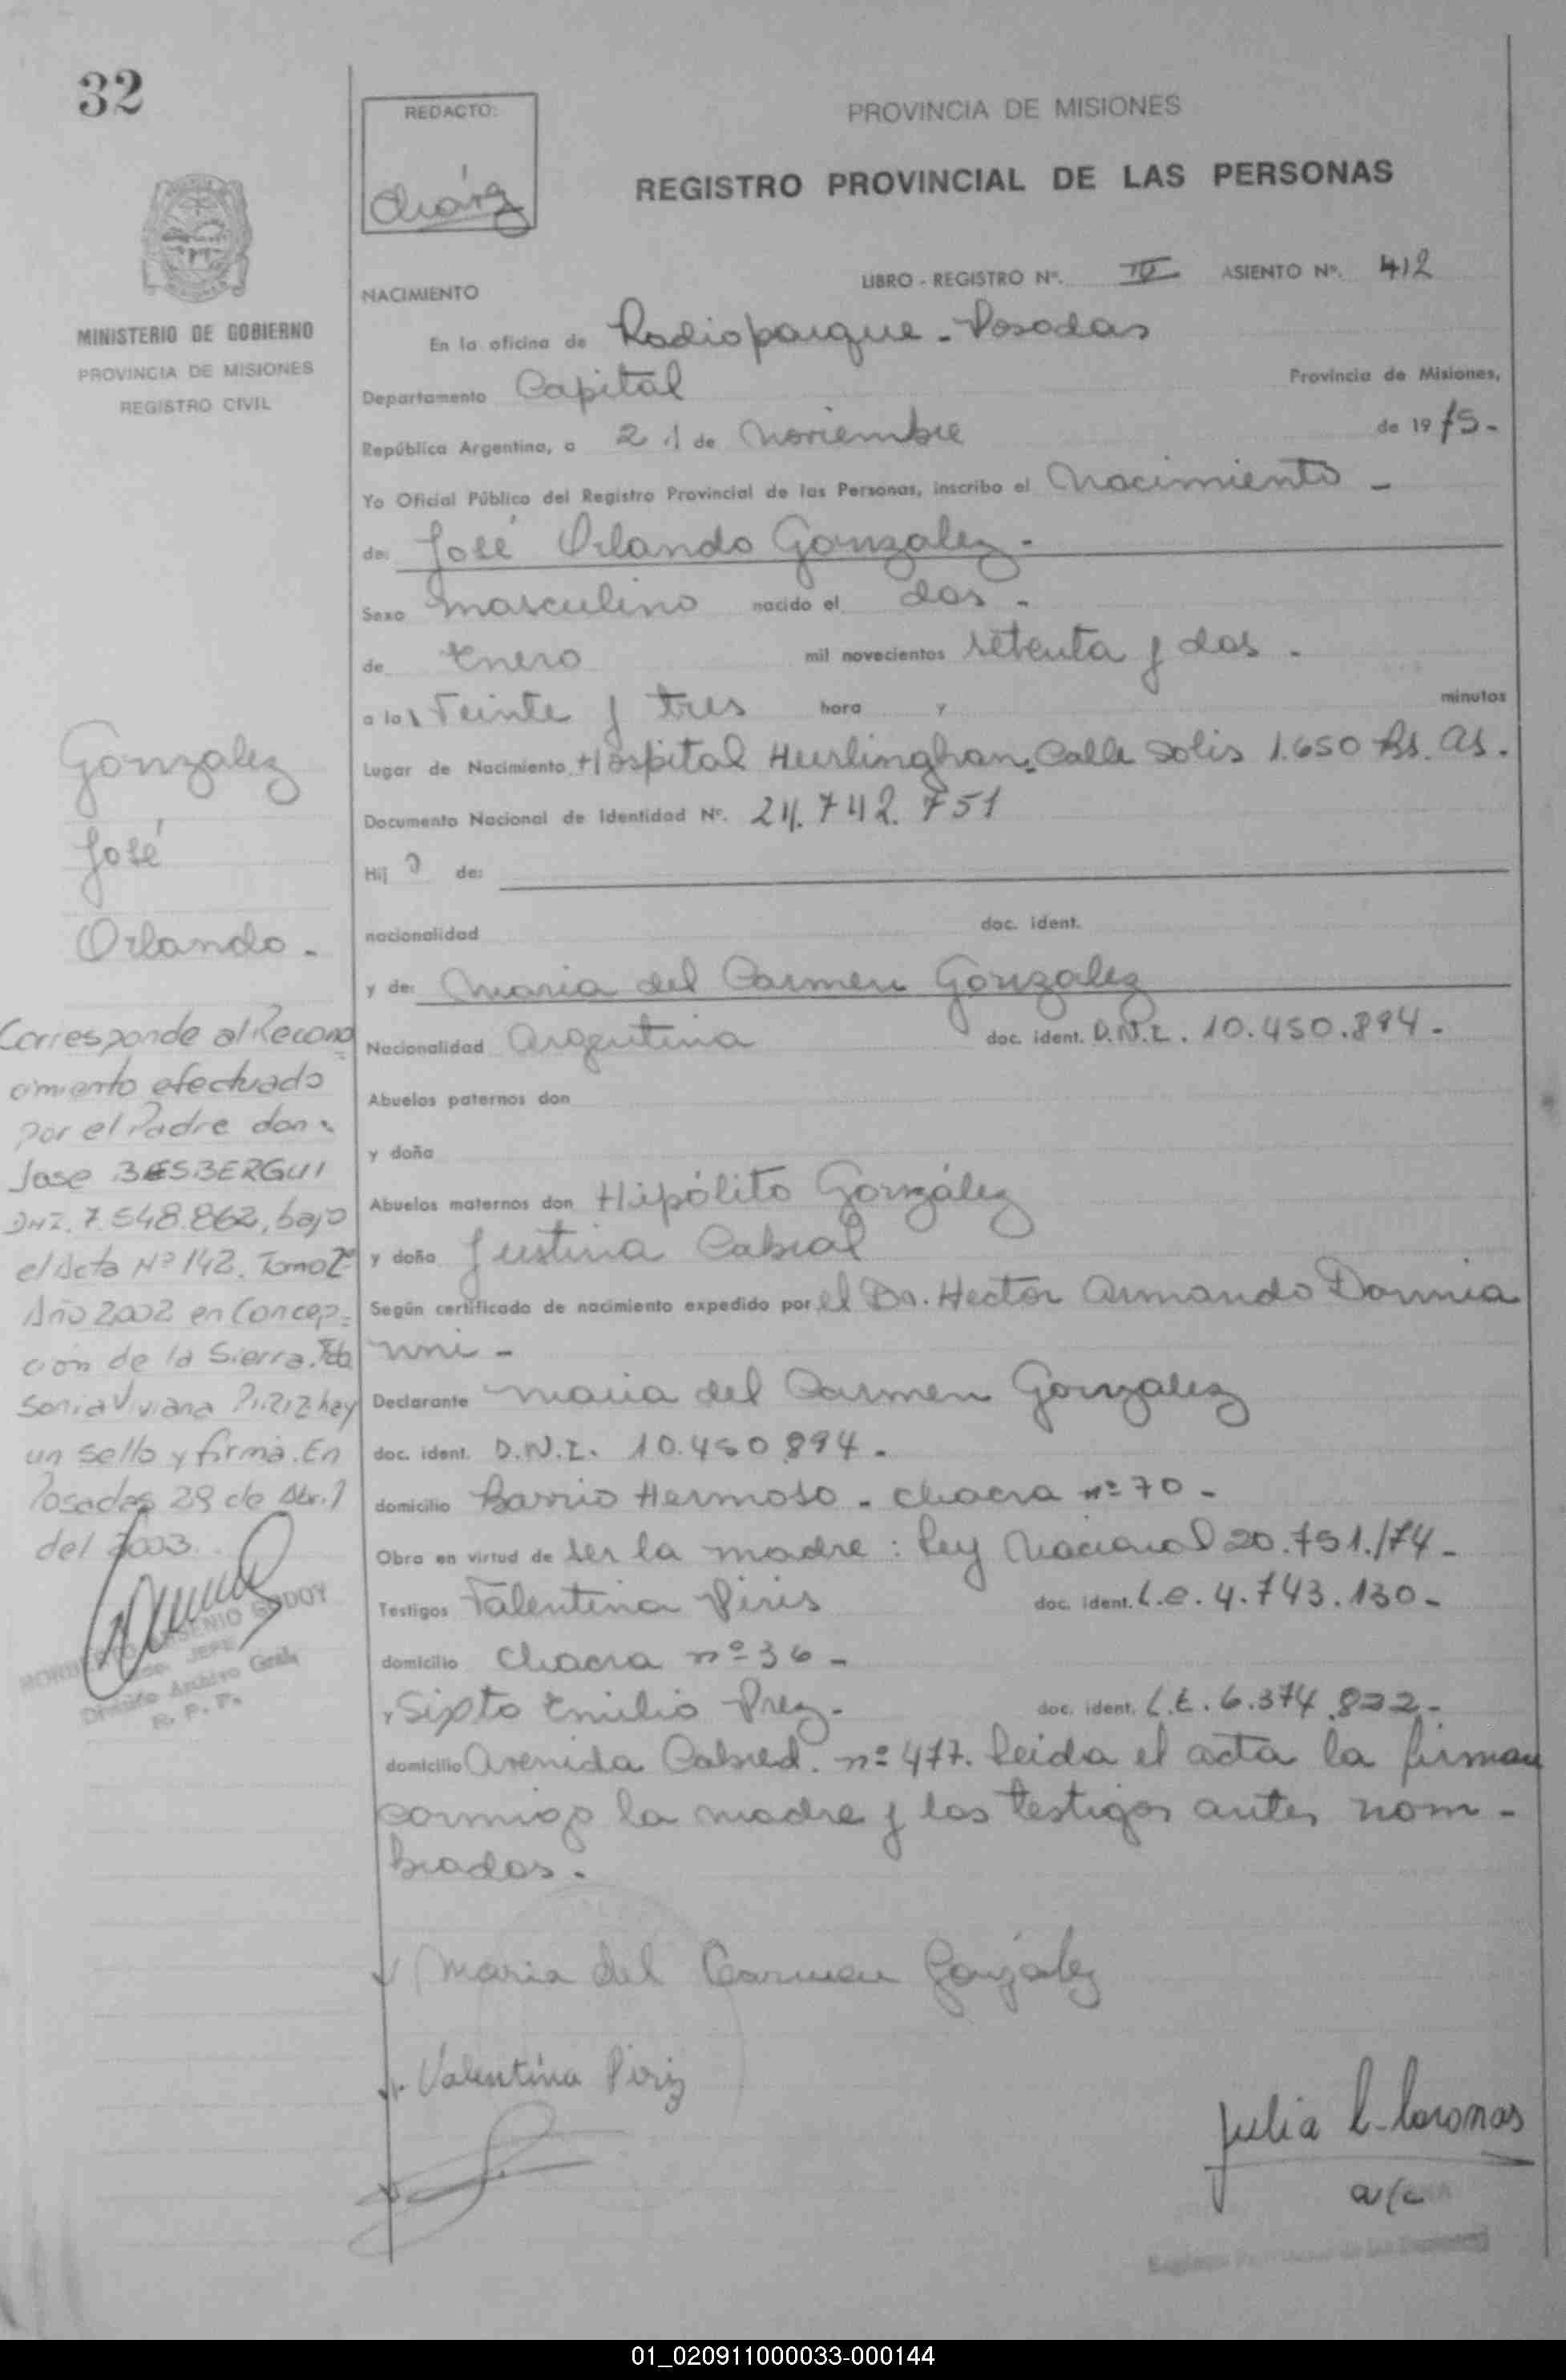 32
REDACTO:
PROVINCIA DE MISIONES
REGISTRO PROVINCIAL DE LAS PERSONAS
MINISTERIO DE GOBIERNO
PROVINCIA DE MISIONES
REGISTRO CIVIL
LIBRO - REGISTRO Nº. ASIENTO Nº. 412
NACIMIENTO
En la oficina de Radioparque - Posadas
Departamento Capital Provincia de Misiones,
República Argentina, a de Noviembre de 1975-
Yo Oficial Público del Registro Provincial de las Personas, inscribo el Nacimiento -
de: José Orlando Gonzalez -
Sexo masculino nacido el dos -
de Enero mil novecientos setenta y dos -
a las Veinte y tres hora y minutos
Lugar de Nacimiento Hospital Hurlinghan. Calle Solis 1.650 Bs. As.
Documento Nacional de Identidad Nº. 24.742.751
Hij o de:
nacionalidad doc. ident.
y de: Maria del Carmen Gonzalez
Nacionalidad Argentina doc. ident. D.N.I. 10.450.894-
Abuelos paternos don
y doña
Abuelos maternos don Hipólito González
y doña Justina Cabral
Según certificado de nacimiento expedido por el Dr. Hector Armando Dannia
nni -
Declarante Maria del Carmen Gonzalez
doc. ident. D.N.I. 10.450.894-
domicilio Barrio Hermoso - Chacra nº 70 -
Obra en virtud de ser la madre: Ley Nacional 20.751./74-
Testigos Valentina Piris doc. ident. L.C. 4.743.130-
domicilio Chacra nº 36 -
y Sixto Emilio Prez - doc. ident. L.E. 6.374.832-
domicilio Avenida Cabred. nº 477. Leida el acta la firman
conmigo la madre y los testigos antes nom-
brados.
Gonzalez
José
Orlando -
Corresponde al Recono
cimiento efectuado
por el Padre don:
Jose BESBERGUI
DNI. 7.548.862, bajo
el Acta Nº 142. Tomo 2º
Año 2002 en Concep-
ción de la Sierra. Fdo
Sonia Viviana PIRIZ hay
un sello y firma. En
Posadas 29 de Abril
del 2003.
GODOY
JEFE
División Archivo Gral.
R. P. P.
Maria del Carmen González
Valentina Piriz
Julia
a/c
01_020911000033-000144